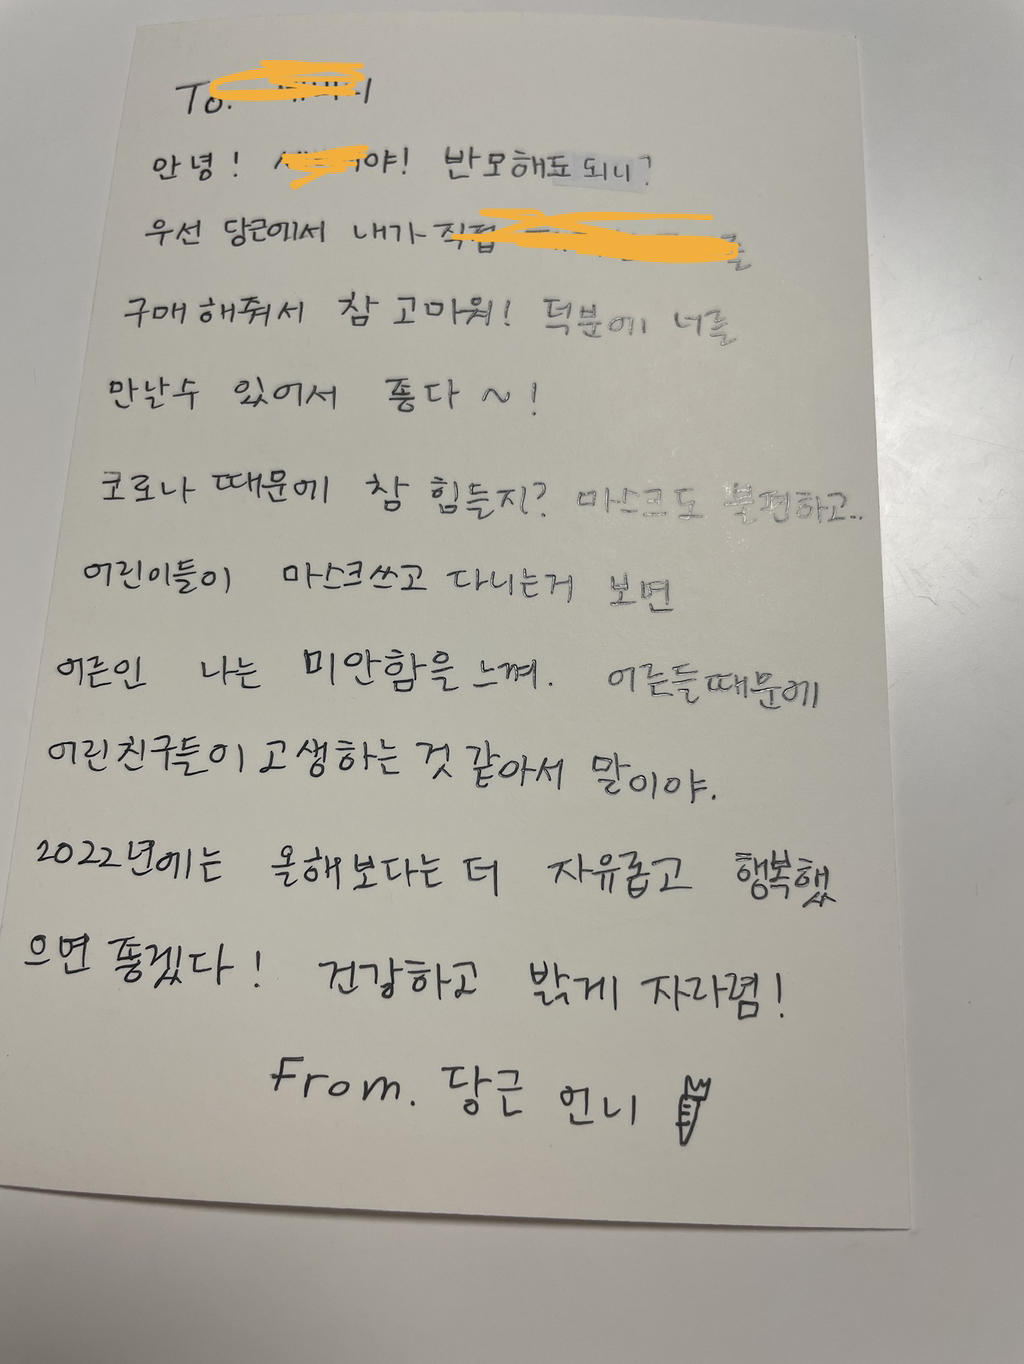 To.
안녕! 야! 반모해도 되니?
우선 당근에서 내가 직접 를
구매해줘서 참 고마워! 덕분에 너를
만날수 있어서 좋다~!
코로나 때문에 참 힘들지? 마스크도 불편하고..
어린이들이 마스크쓰고 다니는거 보면
어른인 나는 미안함을 느껴. 어른들때문에
어린친구들이 고생하는 것 같아서 말이야.
2022년에는 올해보다는 더 자유롭고 행복했
으면 좋겠다! 건강하고 밝게 자라렴!
From. 당근 언니